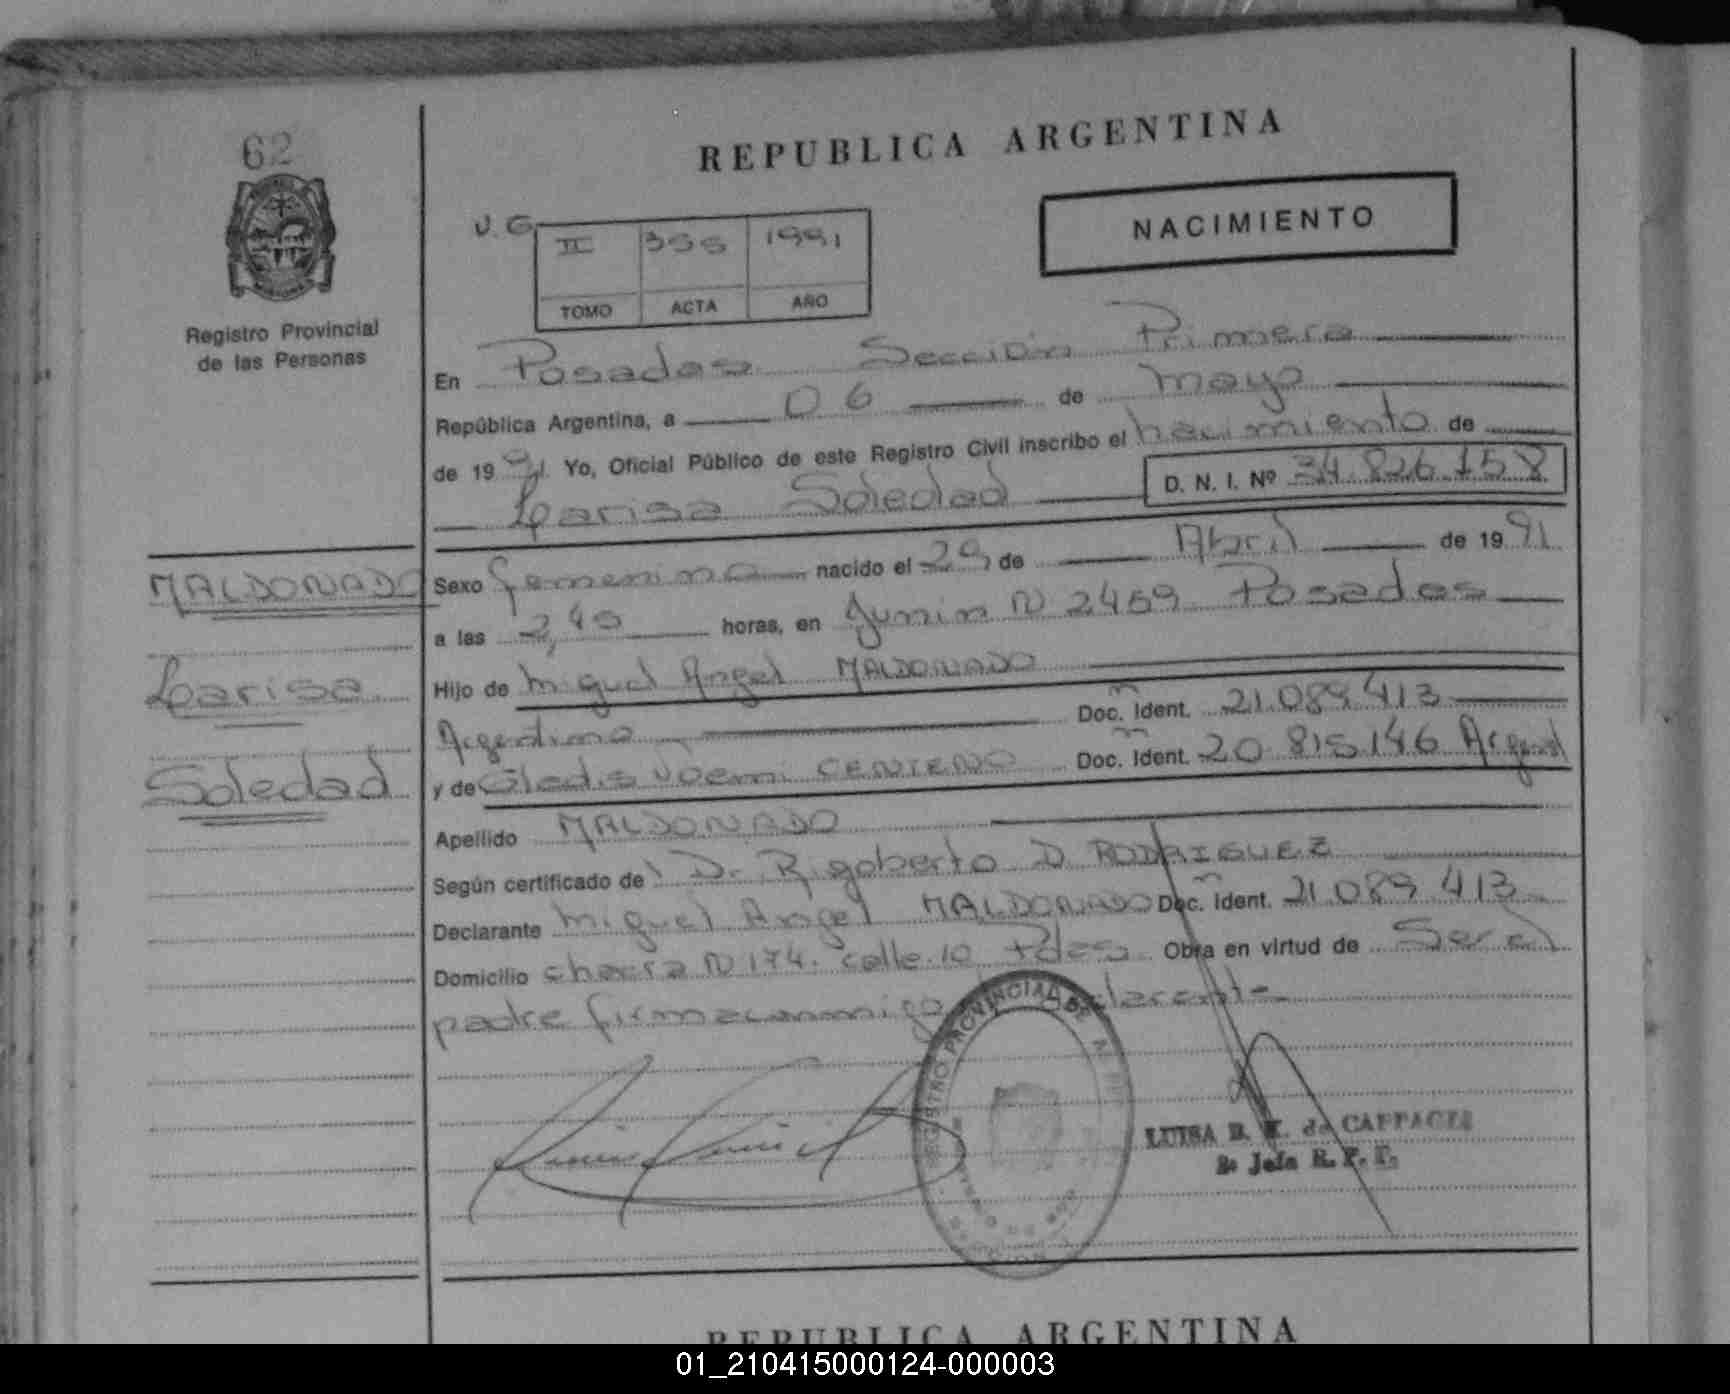 62
REPUBLICA ARGENTINA
NACIMIENTO
Registro Provincial
de las Personas
V. G. II 355 1991
TOMO ACTA AÑO
En Posadas Sección Primera
República Argentina, a 06 de mayo
de 1991. Yo, Oficial Público de este Registro Civil inscribo el nacimiento de
Larisa Soledad D. N. I. Nº 34.826.158
MALDONADO
Larisa
Soledad
Sexo femenino nacido el 29 de Abril de 1991
a las 2,45 horas, en Junin N 2459 Posadas
Hijo de Miguel Angel MALDONADO
Argentino Doc. Ident. 21.089.413
y de Gladis Noemi CENTENO Doc. Ident. 20.815.146 Argent
Apellido MALDONADO
Según certificado del Dr. Rigoberto D. RODRIGUEZ
Declarante Miguel Angel MALDONADO Doc. Ident. 21.089.413
Domicilio chacra N 174. calle 10 Pdas Obra en virtud de Ser el
padre firma conmigo
REGISTRO PROVINCIAL DE
LUISA B. K. de
2ª Jefa R. P. P.
REPUBLICA ARGENTINA
01_210415000124-000003